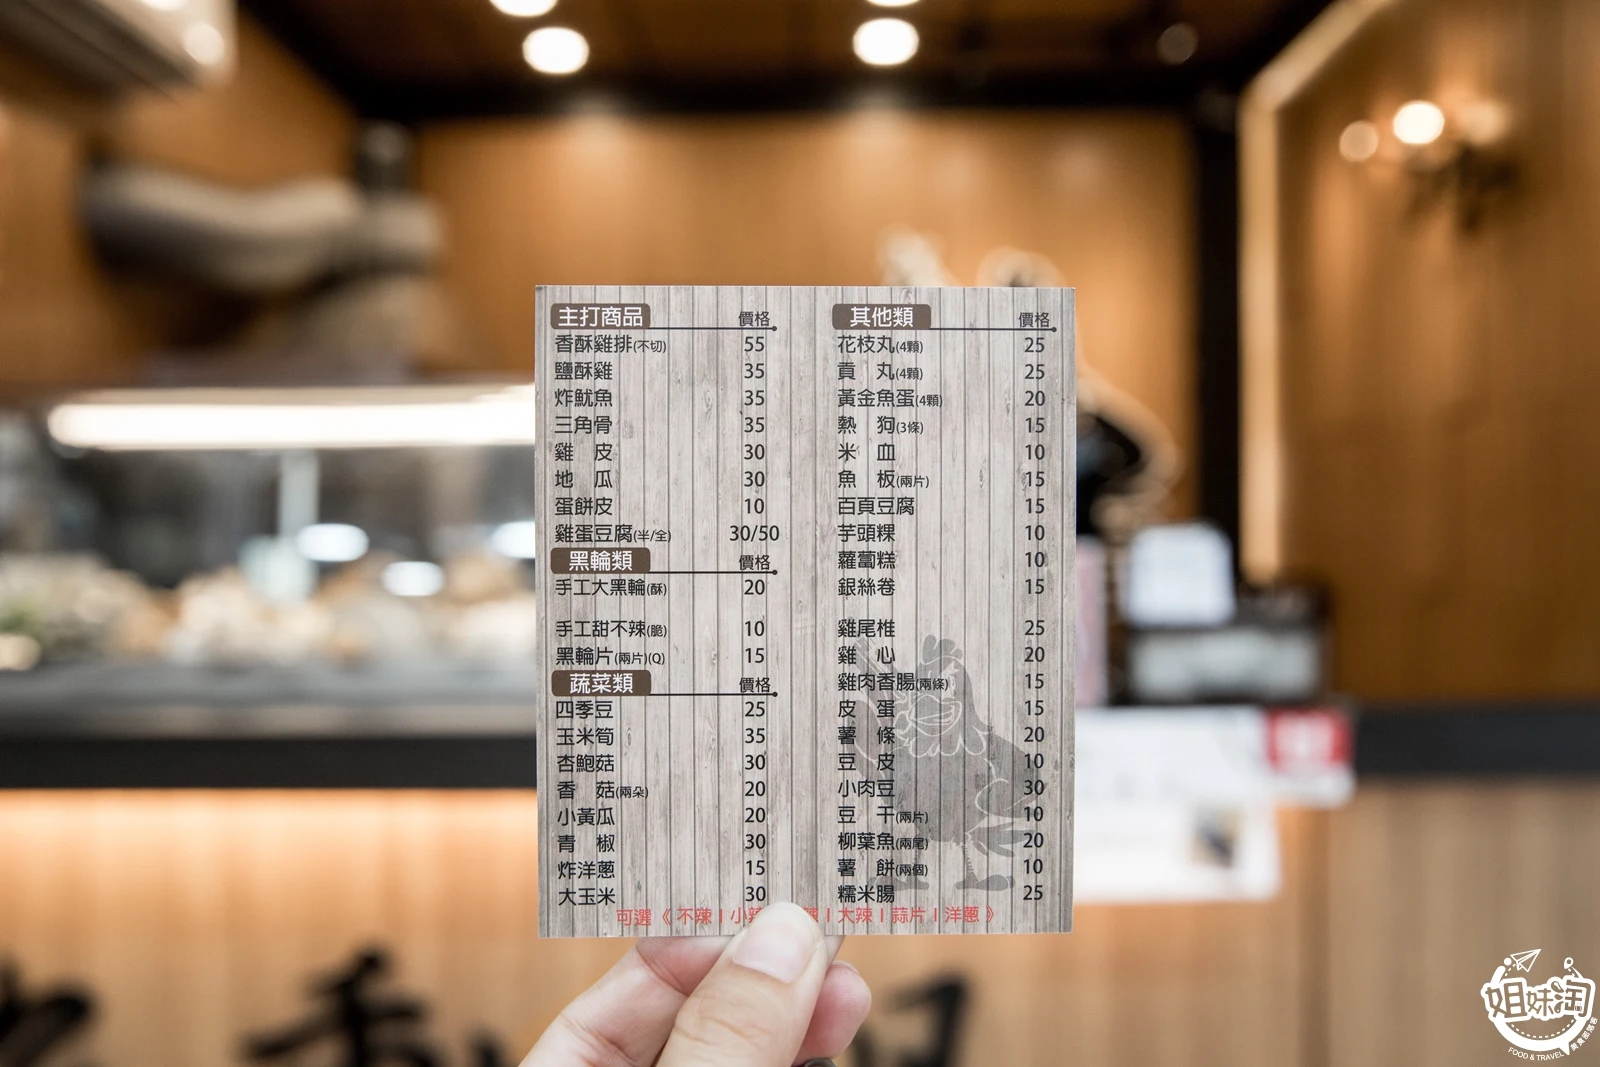 主打商品 價格
香酥雞排(不切) 55
鹽酥雞 35
炸魷魚 35
三角骨 35
雞 皮 30
地 瓜 30
蛋餅皮 10
雞蛋豆腐(半/全) 30/50
黑輪類 價格
手工大黑輪(酥) 20
手工甜不辣(脆) 10
黑輪片(兩片)(Q) 15
蔬菜類 價格
四季豆 25
玉米筍 35
杏鮑菇 30
香 菇(兩朵) 20
小黃瓜 20
青 椒 30
炸洋蔥 15
大玉米 30
其他類 價格
花枝丸(4顆) 25
貢 丸(4顆) 25
黃金魚蛋(4顆) 20
熱 狗(3條) 15
米 血 10
魚 板(兩片) 15
百頁豆腐 15
芋頭粿 10
蘿蔔糕 10
銀絲卷 15
雞尾椎 25
雞 心 20
雞肉香腸(兩條) 15
皮 蛋 15
薯 條 20
豆 皮 10
小肉豆 30
豆 干(兩片) 10
柳葉魚(兩尾) 20
薯 餅(兩個) 10
糯米腸 25
可選《 不辣 | 小辣 | 大辣 | 蒜片 | 洋蔥 》
姐妹淘
FOOD & TRAVEL